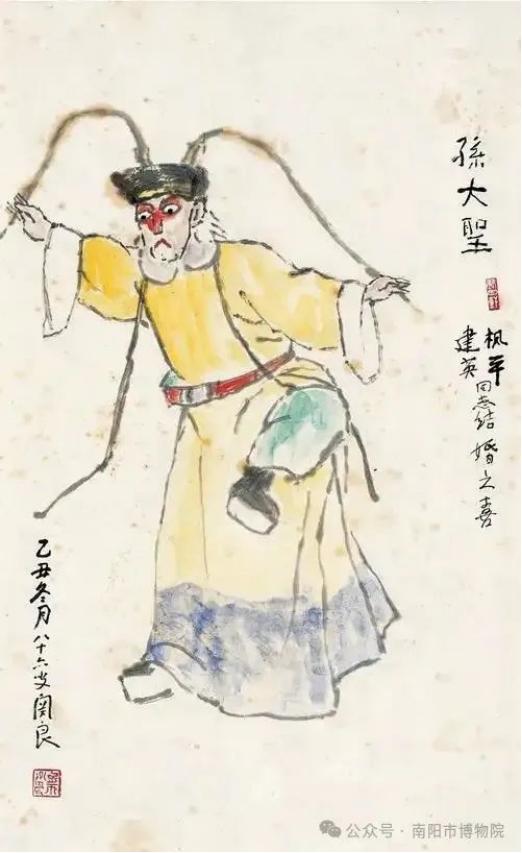 孫大聖
枫平
建英同志结婚之喜
乙丑冬月八十六叟関良
公众号·南阳市博物院